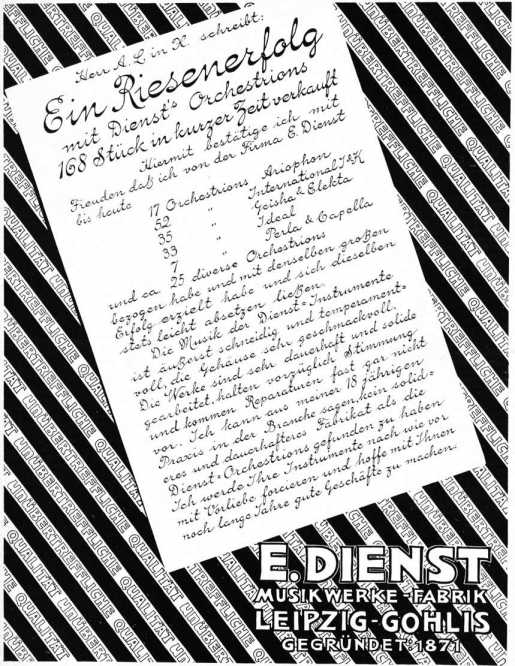 Herr A. L. in X. schreibt:
Ein Riesenerfolg
mit Dienst's Orchestrions
168 Stück in kurzer Zeit verkauft
Hiermit bestätige ich mit
Freuden daß ich von der Firma E. Dienst
bis heute 17 Orchestrions Ariophon
52 " International I & II
35 " Geisha & Elekta
33 " Ideal
7 " Perla & Capella
und ca. 25 diverse Orchestrions
bezogen habe und mit denselben großen
Erfolg erzielt habe und sich dieselben
stets leicht absetzen ließen.
Die Musik der Dienst-Instrumente
ist äußerst schneidig und temperament-
voll, die Gehäuse sehr geschmackvoll.
Die Werke sind sehr dauerhaft und solide
gearbeitet, halten vorzüglich Stimmung
und kommen Reparaturen fast gar nicht
vor. Ich kann aus meiner 18 jährigen
Praxis in der Branche sagen, kein solid-
eres und dauerhafteres Fabrikat als die
Dienst-Orchestrions gefunden zu haben
Ich werde Ihre Instrumente nach wie vor
mit Vorliebe forcieren und hoffe mit Ihnen
noch lange Jahre gute Geschäfte zu machen.
UNÜBERTREFFLICHE QUALITÄT
E. DIENST
MUSIKWERKE-FABRIK
LEIPZIG-GOHLIS
GEGRÜNDET: 1871